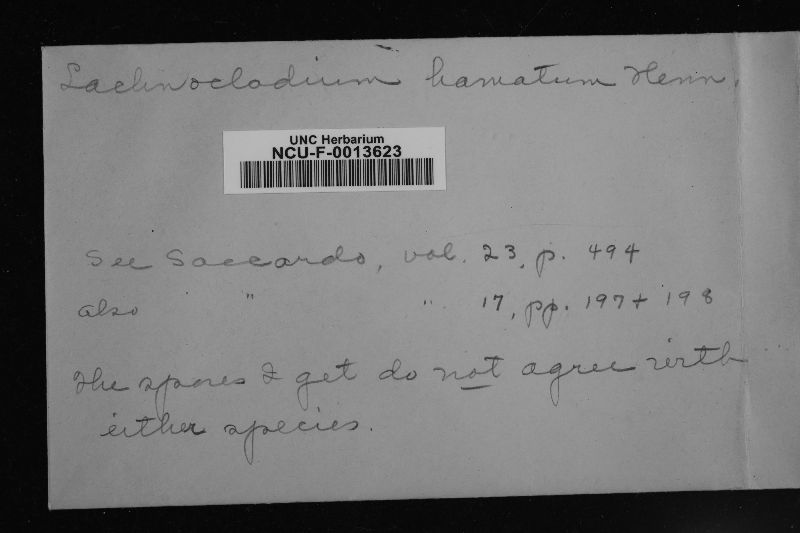 Lachnocladium hamatum Henn.
UNC Herbarium
NCU-F-0013623
See Saccardo, vol. 23, p. 494
also " " 17, pp. 197 + 198
The spores I get do not agree with
either species.